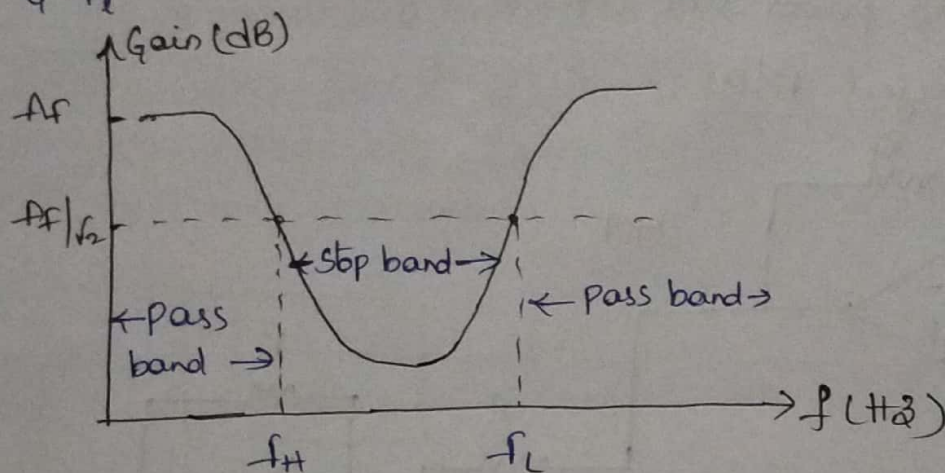 Gain (dB)
Af
Af/√2
←Stop band→
← pass band→
←pass
band →
f (Hz)
fH
fL